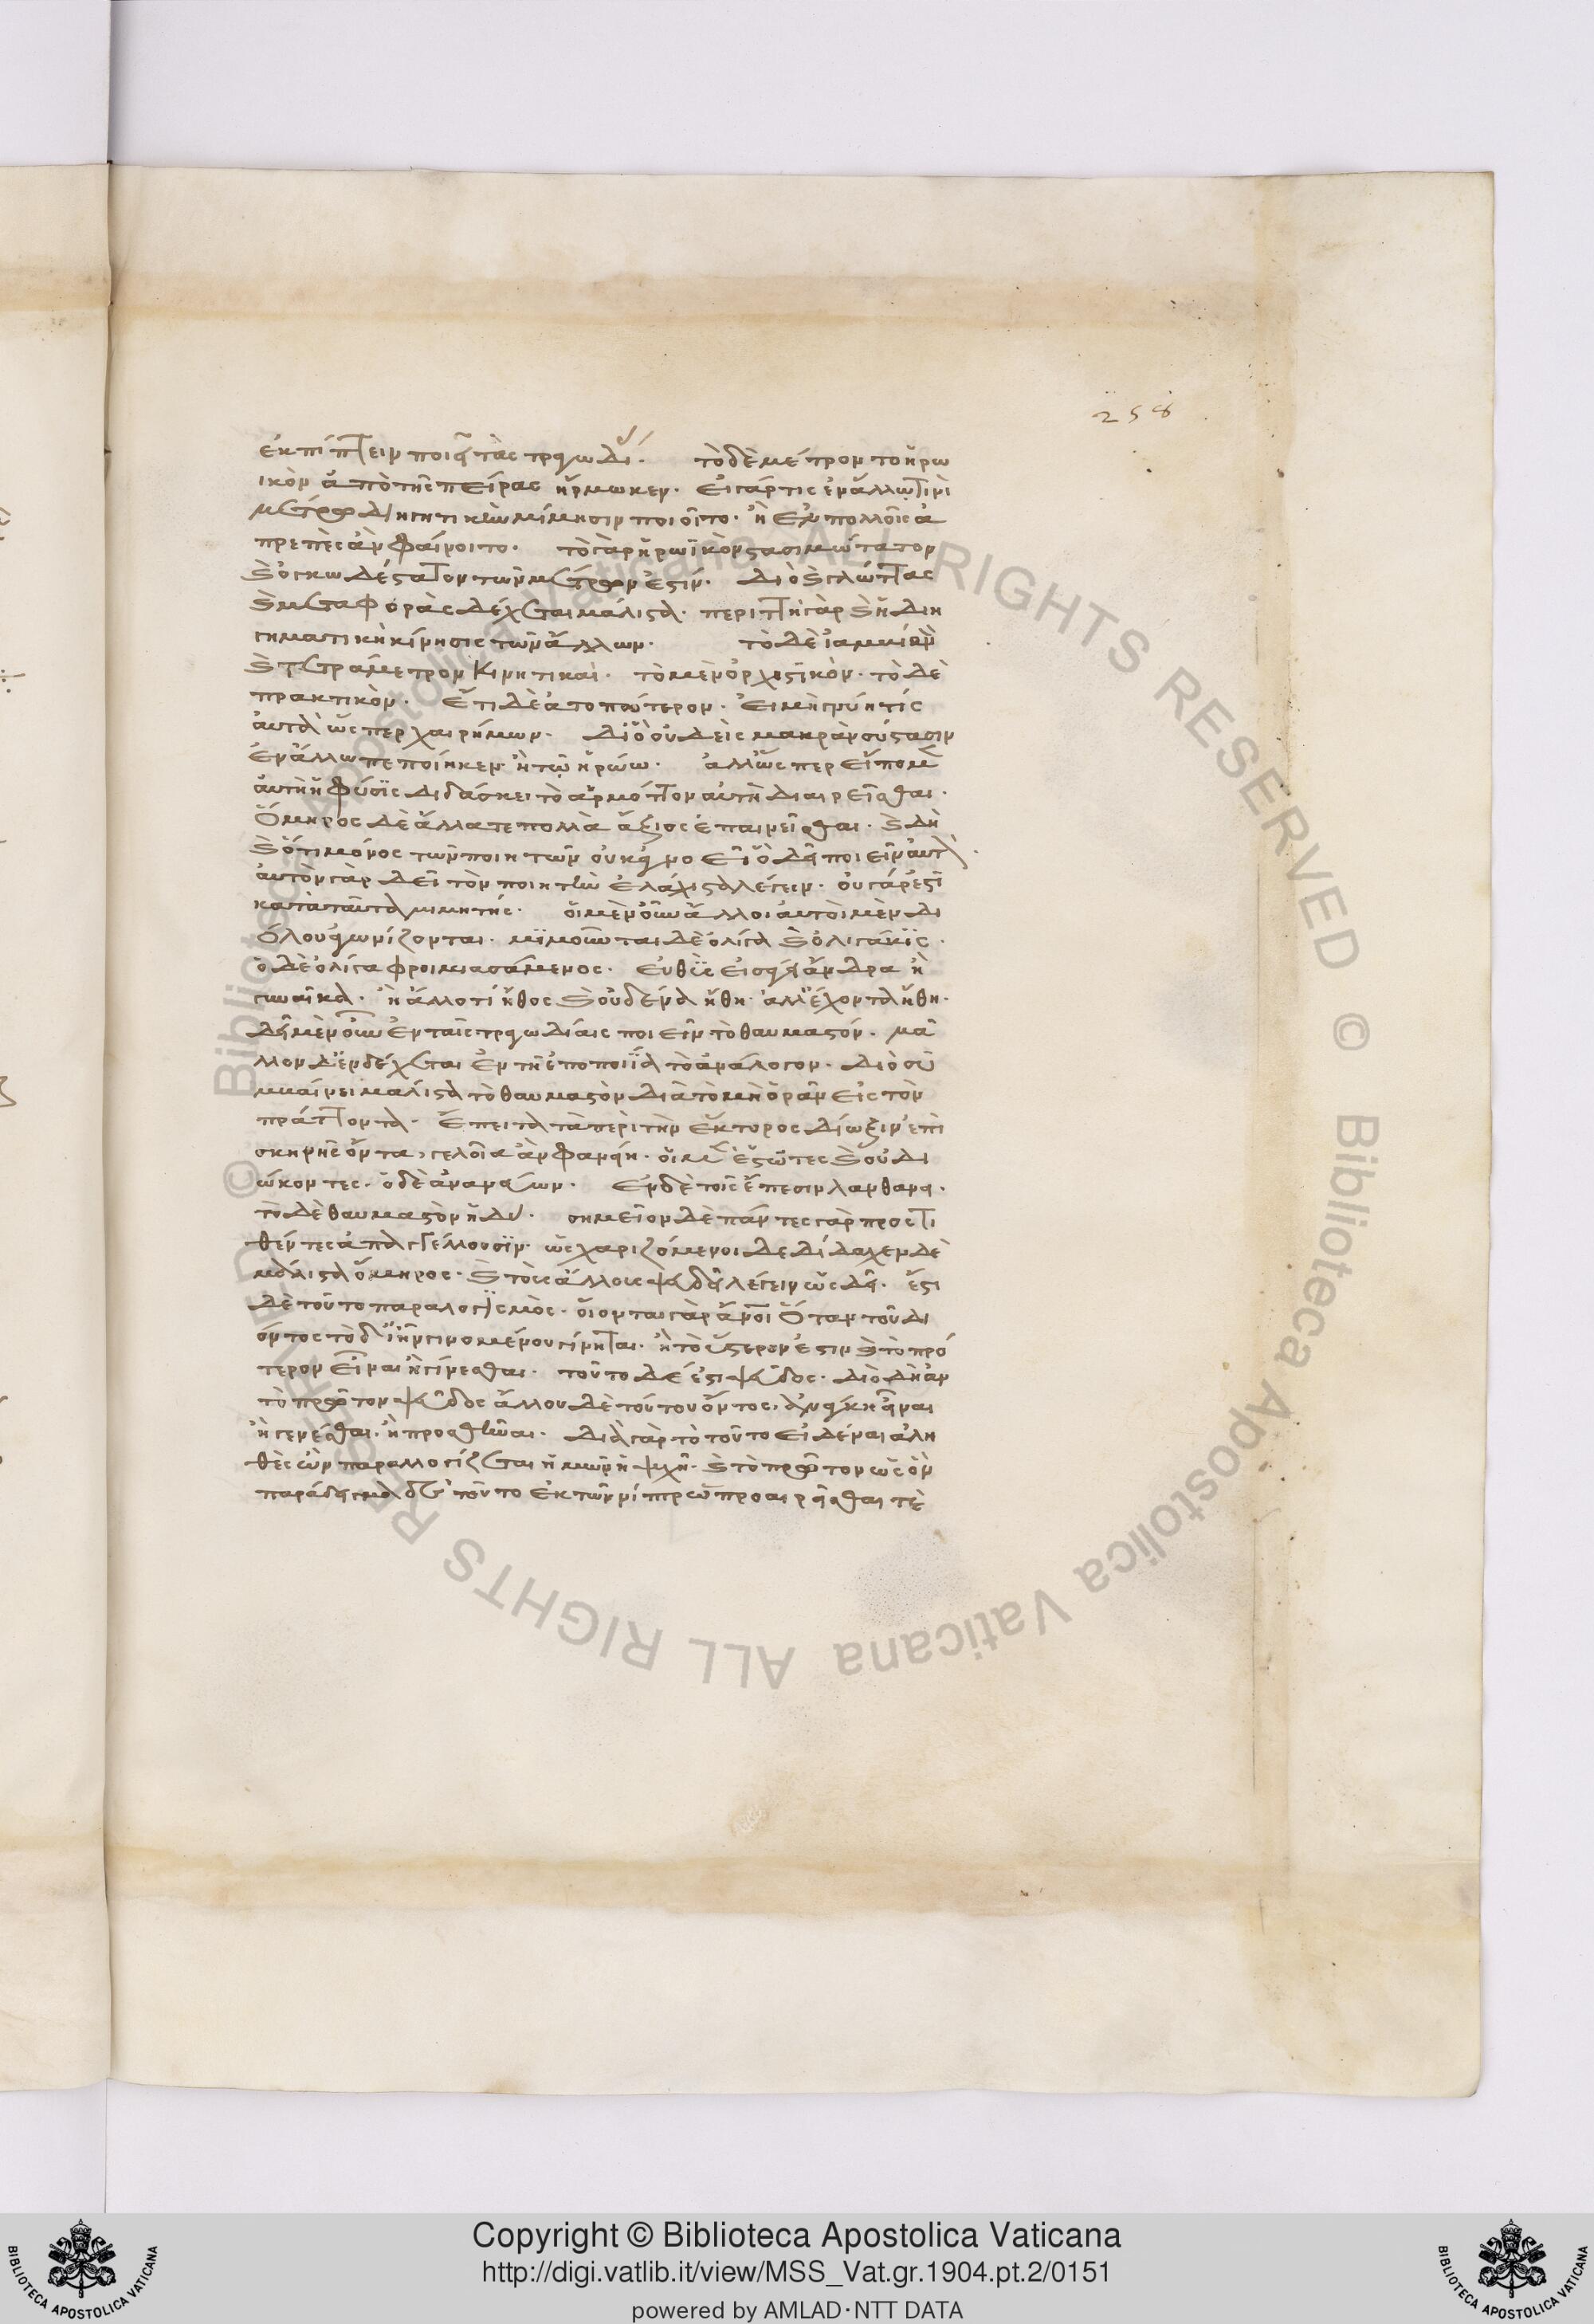 258
ἐκπίπτειν ποιεῖ τὰς τραγωδί. τὸ δὲ μέτρον τὸ ἡρω
ικὸν ἀπὸ τῆς πείρας ἥρμωκεν. εἰ γάρ τις ἐν ἄλλω τινὶ
μέτρω διηγητικὴν μίμησιν ποιοῖτο. ἢ ἐν πολλοῖς ἀ
πρεπὲς ἂν φαίνοιτο. τὸ γὰρ ἡρωϊκὸν στασιμώτατον
καὶ ὀγκωδέστατον τῶν μέτρων ἐστίν. διὸ καὶ γλώττας
καὶ μεταφορὰς δέχεται μάλιστα. περιττὴ γὰρ καὶ ἡ διη
γηματικὴ κίνησις τῶν ἄλλων. τὸ δὲ ἰαμβίον
καὶ τετράμετρον κινητικαὶ. τὸ μὲν ὀρχηστικὸν. τὸ δὲ
πρακτικὸν. ἔτι δὲ ἀτοπώτερον. εἰ μὴ γνύη τίς
αὐτὰ ὥσπερ χαιρήμων. διὸ οὐδεὶς μακρὰν σύστασιν
ἐν ἄλλω πεποίηκεν ἢ τῷ ἡρώω. ἀλλ' ὥσπερ εἴπομεν
αὐτὴ ἡ φύσις διδάσκει τὸ ἁρμόττον αὐτῇ διαιρεῖσθαι.
ὅμηρος δὲ ἄλλα τε πολλὰ ἄξιος ἐπαινεῖσθαι. καὶ δὴ
καὶ ὅτι μόνος τῶν ποιητῶν οὐκ ἀγνοεῖ ὃ δεῖ ποιεῖν αὐτὸν.
αὐτὸν γὰρ δεῖ τὸν ποιητὴν ἐλάχιστα λέγειν. οὐ γάρ ἐστι
κατὰ ταῦτα μιμητής. οἱ μὲν οὖν ἄλλοι αὐτοὶ μὲν δι
ὅλου ἀγωνίζονται. μιμοῦνται δὲ ὀλίγα καὶ ὀλιγάκις.
ὁ δὲ ὀλίγα φροιμιασάμενος. εὐθὺς εἰσάγει ἄνδρα ἢ
γυναῖκα. ἢ ἄλλο τί ἦθος καὶ οὐδένα ἤθη. ἀλλ' ἔχοντα ἤθη.
δεῖ μὲν οὖν ἐν ταῖς τραγωδίαις ποιεῖν τὸ θαυμαστόν. μᾶ
λλον δ' ἐνδέχεται ἐν τῇ ἐποποιΐα τὸ ἀνάλογον. διὸ συ
μβαίνει μάλιστα τὸ θαυμαστὸν διὰ τὸ μὴ ὁρᾶν εἰς τὸν
πράττοντα. ἔπειτα τὰ περὶ τὴν ἕκτορος δίωξιν ἐπὶ
σκηνῆς ὄντα, γελοῖα ἂν φανείη. οἱ μὲν ἑστῶτες καὶ οὐ δι
ώκοντες. ὁ δὲ ἀνανεύων. ἐν δὲ τοῖς ἔπεσιν λανθάνει.
τὸ δὲ θαυμαστὸν ἡδύ. σημεῖον δὲ πάντες γὰρ προστι
θέντες ἀπαγγέλλουσιν. ὡς χαριζόμενοι δεδίδαχεν δὲ
μάλιστα ὅμηρος. καὶ τοὺς ἄλλους ψευδῆ λέγειν ὡς δεῖ. ἔστι
δὲ τοῦτο παραλογισμὸς. οἴονται γὰρ ἄνθρωποι ὅταν τοῦ δι
όντος τὸ δὶ ἦν γινομένου γίνηται. ἢ τὸ ὕστερον ἐστιν καὶ τὸ πρό
τερον εἶναι ἢ γίνεσθαι. τοῦτο δέ ἐστι ψεῦδος. διὸ δὴ ἂν
τὸ πρῶτον ψεῦδος ἄλλου δὲ τούτου ὄντος. ἀνάγκη εἶναι
ἢ γενέσθαι. ἢ προσθεῖναι. διὰ γὰρ τὸ τοῦτο εἰδέναι ἀλη
θὲς ὂν παραλογίζεται ἡμῶν ἡ ψυχὴ. καὶ τὸ πρῶτον ὡς ὂν
παράδειγμα δὲ τοῦτο ἐκ τῶν νίπτρων προαιρεῖσθαι τε
Copyright © Biblioteca Apostolica Vaticana
http://digi.vatlib.it/view/MSS_Vat.gr.1904.pt.2/0151
powered by AMLAD·NTT DATA